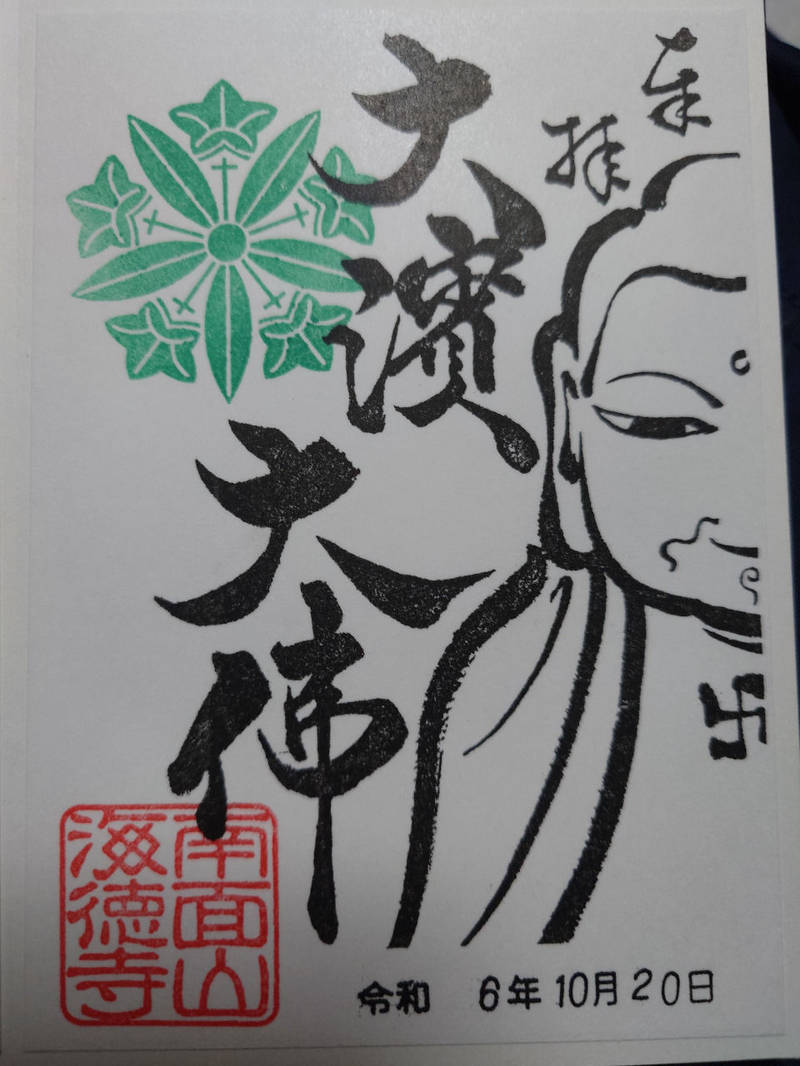 奉拝
大濱
大佛
卍
南面山
海徳寺
令和 6年10月20日